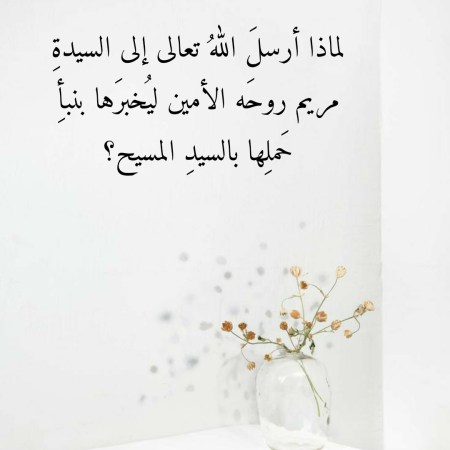 لماذا أرسلَ اللهُ تعالى إلى السيدةِ
مريم روحَه الأمين ليُخبرَها بنبأِ
حَملِها بالسيدِ المسيح؟